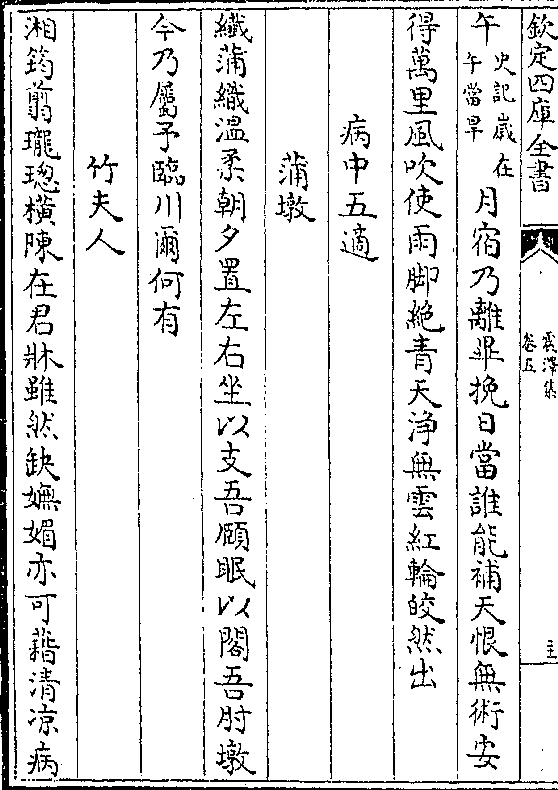 欽定四庫全書
震澤集
卷五
午史記歲在午當旱月宿乃離畢挽日當誰能補天恨無術安
得萬里風吹使雨脚絶青天淨無雲紅輪皎然出
病中五適
蒲墩
纎蒲織溫柔朝夕置左右坐以支吾頤眠以閣吾肘墩
今乃屬予臨川爾何有
竹夫人
湘筠翦瓏璁橫陳在君牀雖然缺嫵媚亦可藉清凉病